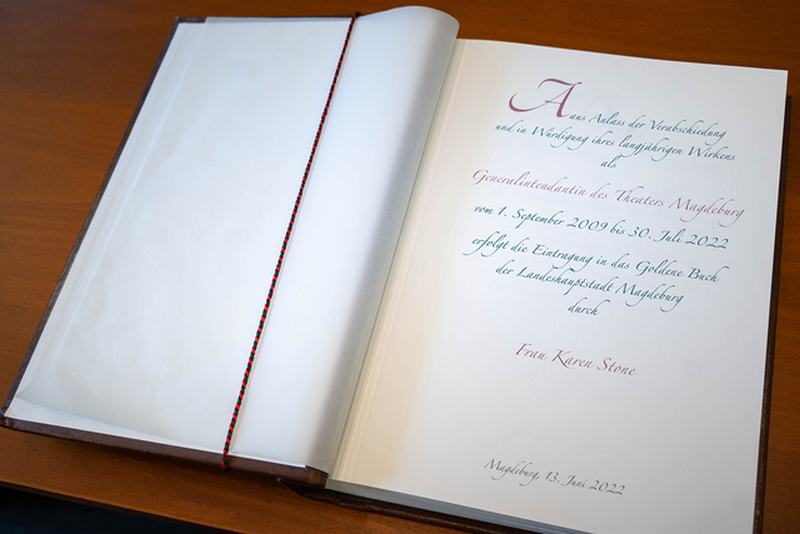 A aus Anlass der Verabschiedung
und in Würdigung ihres langjährigen Wirkens
als
Generalintendantin des Theaters Magdeburg
vom 1. September 2009 bis 30. Juli 2022
erfolgt die Eintragung in das Goldene Buch
der Landeshauptstadt Magdeburg
durch
Frau Karen Stone
Magdeburg, 13. Juni 2022